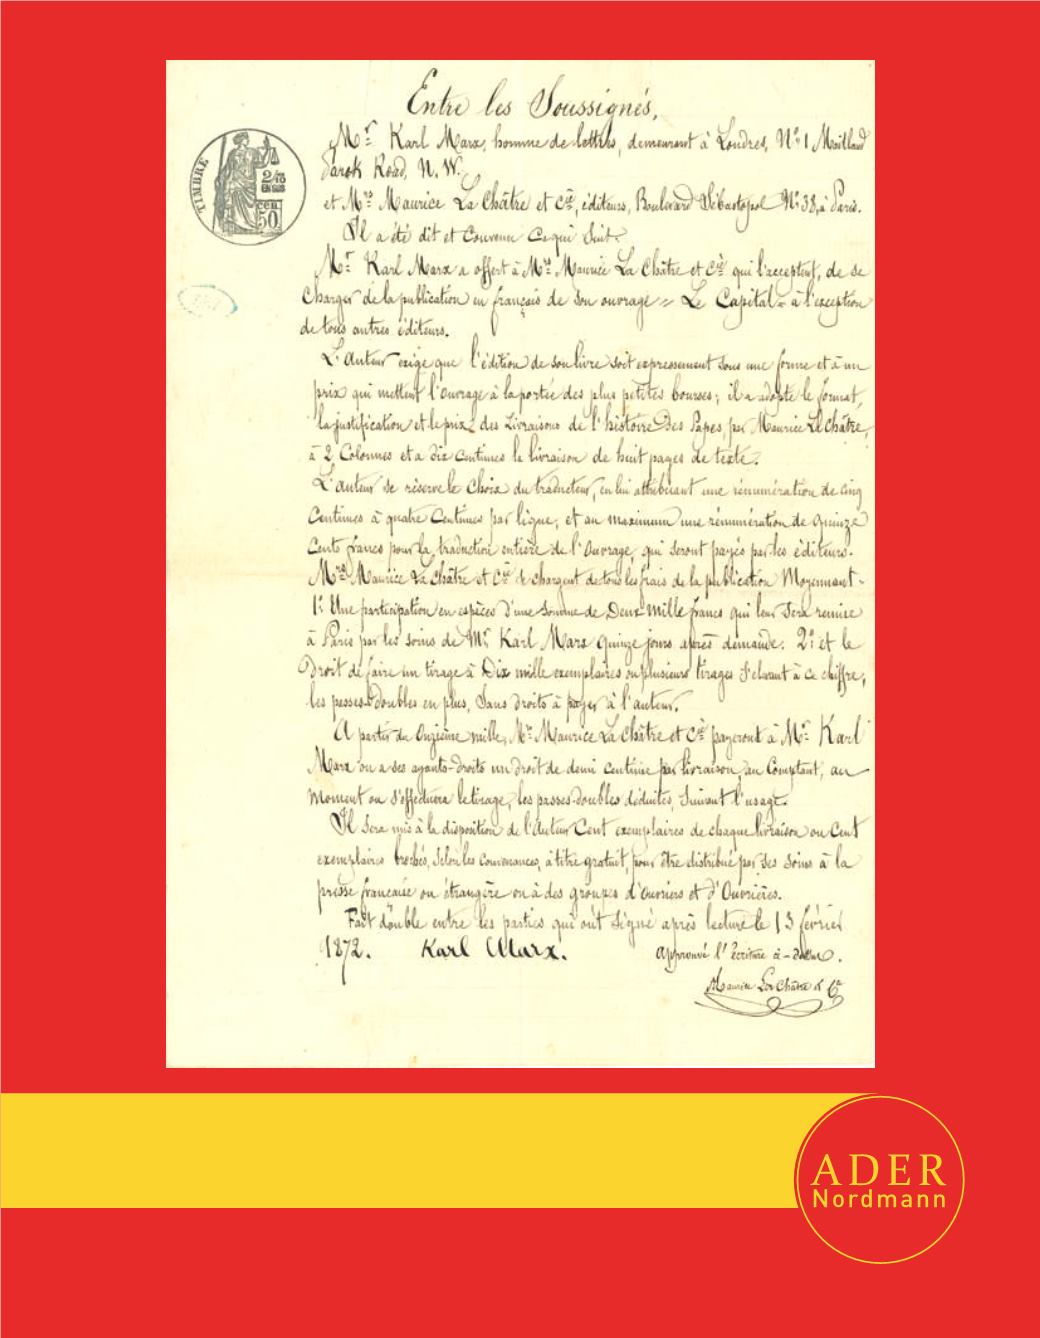 Entre les Soussignés,
Mr. Karl Marx, homme de lettres, demeurant à Londres, No. 1 Maitland
Parok Road, N. W.
et Mrs. Maurice La Châtre et Cie, éditeurs, Boulevard Sébastopol No. 38, à Paris.
Il a été dit et Convenu Ce qui Suit.
Mr. Karl Marx a offert à Mrs. Maurice La Châtre et Cie qui l'acceptent, de se
Charger de la publication en français de son ouvrage " Le Capital " à l'exception
de tous autres éditeurs.
L'Auteur exige que l'édition de son livre soit expressement sous une forme et à un
prix qui mettent l'Ouvrage à la portée des plus petites bourses; il a adopté le format,
la justification et le prix des Livraisons de l'histoire des Papes, par Maurice La Châtre,
à 2 Colonnes et a dix Centimes la livraison de huit pages de texte.
L'auteur se réserve le Choix du traducteur, en lui attribuant une rénumération de cinq
Centimes à quatre Centimes par ligne; et au maximum une rénumération de quinze
Cents francs pour la traduction entière de l'Ouvrage, qui seront payés par les éditeurs.
Mrs. Maurice La Châtre et Cie se chargent de tous les frais de la publication Moyennant -
1o. Une participation en espèces d'une Somme de Deux Mille francs qui leur Sera remise
à Paris par les soins de Mr. Karl Marx quinze jours après demande. 2o. et le
Droit de faire un tirage à Dix mille exemplaires ou plusieurs tirages S'élevant à ce chiffre,
les passes-doubles en plus, Sans droits à payer à l'auteur.
A partir du Onzième mille, Mrs. Maurice La Châtre et Cie payeront à Mr. Karl
Marx ou a ses ayants-droits un droit de demi centime par livraison, au Comptant, au
Moment ou S'effectuera le tirage, les passes-doubles déduites, Suivant l'usage.
Il Sera mis à la disposition de l'Auteur Cent exemplaires de chaque livraison ou Cent
exemplaires brochés, Selon les Convenances, à titre gratuit, pour être distribué par Ses Soins à la
presse française ou étrangère ou à des groupes d'Ouvriers et d'Ouvrières.
Fait double entre les parties qui ont Signé après lecture le 13 février
1872. Karl Marx. approuvé l'écriture ci-dessus.
Maurice La Châtre & Cie
TIMBRE
2/10
EN SUS
50
CEN
ADER
Nordmann